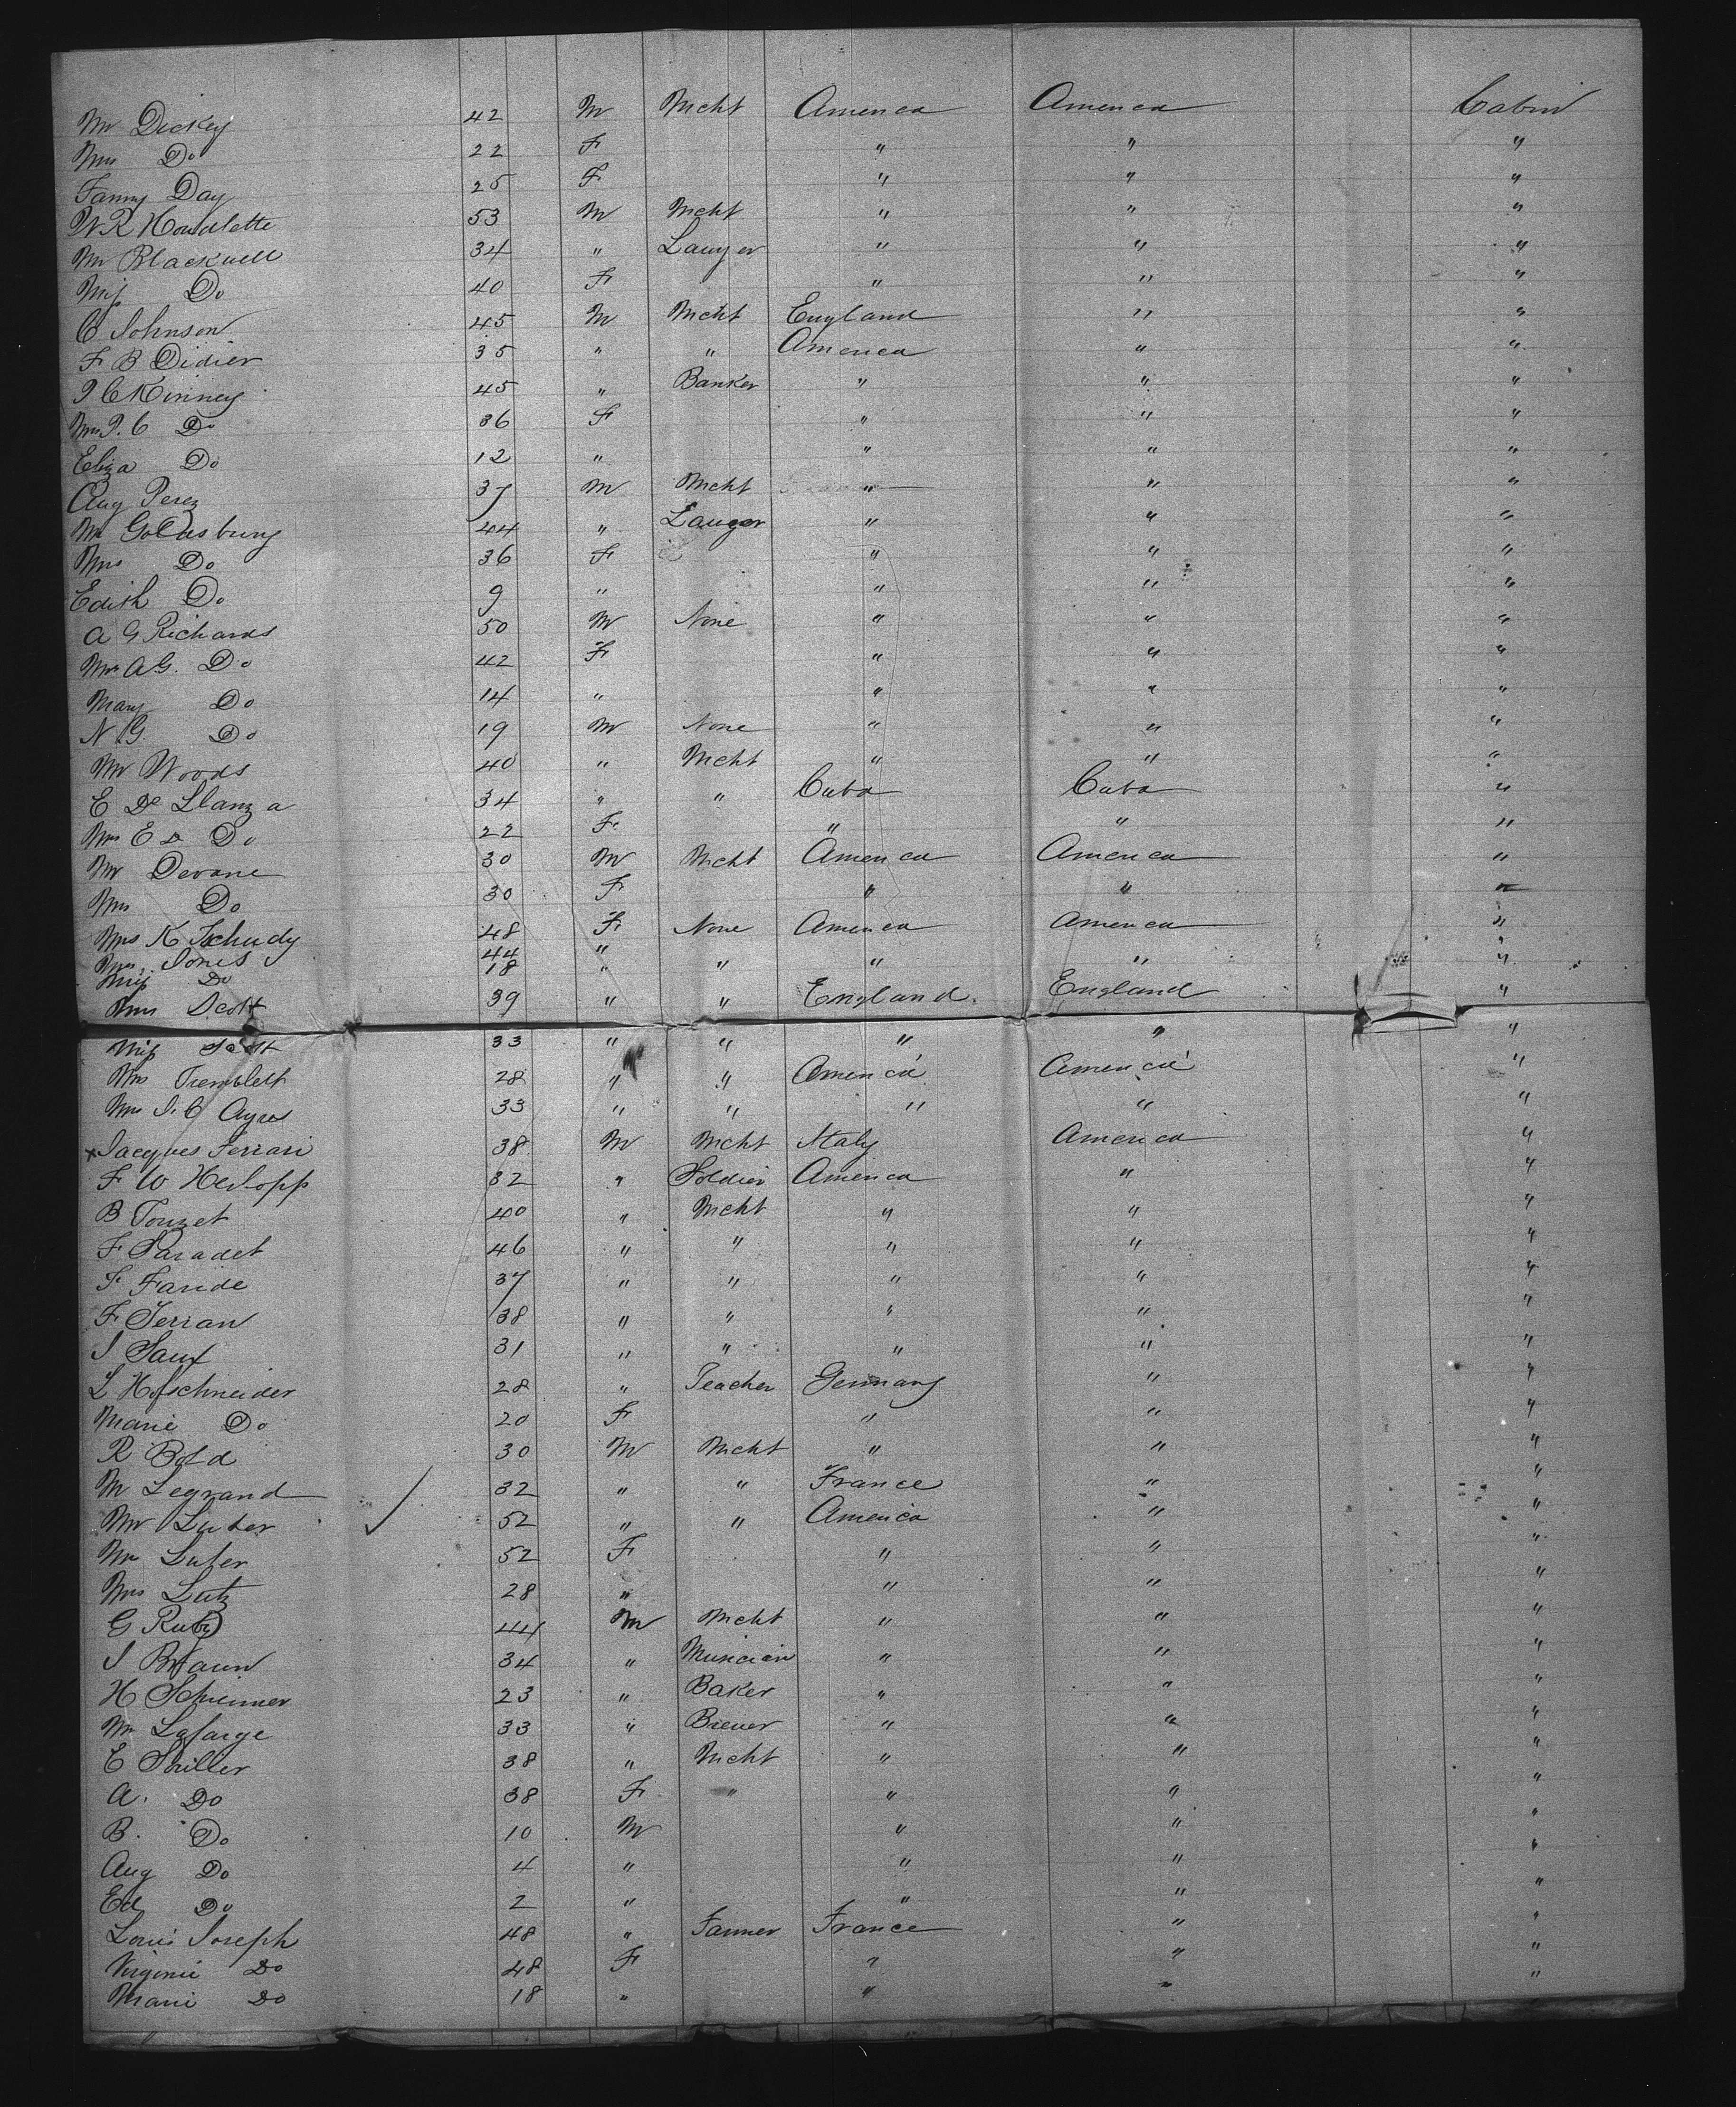 Mr Dickey 42 M Mcht America America Cabin
Mrs Do 22 F " " "
Fanny Day 25 F " " "
W R Houdlette 53 M Mcht " " "
Mr Blackwell 34 " Lawyer " " "
Miss Do 40 F " " "
C Johnson 45 M Mcht England " "
F B Didier 35 " " America " "
P C Kinney 45 " Banker " " "
Mrs P. C Do 36 F " " "
Eliza Do 12 " " " "
Aug Perez 37 M Mcht " " "
Mr Goldsburg 44 " Lawyer " " "
Mrs Do 36 F " " "
Edith Do 9 " " " "
A G Richards 50 M None " " "
Mrs A G. Do 42 F " " "
Mary Do 14 " " " "
N G Do 19 M None " " "
Mr Woods 40 " Mcht " " "
E De Llanza 34 " " Cuba Cuba "
Mrs E D Do 22 F " " "
Mr Devane 30 M Mcht America America "
Mrs Do 30 F " " "
Mrs K Tschudy 48 F None America America "
Mrs. Jones 44 " "
Miss Do 18 " " " " "
Mrs Scott 39 " " England England "
Miss Scott 33 " " " " "
Mrs Tremblett 28 " " America America "
Mrs J. C Ayres 33 " " " " "
x Jacques Ferrari 38 M Mcht Italy America "
F W 32 " Soldier America " "
B Touzet 40 " Mcht " " "
F Paradet 46 " " " " "
F Faride 37 " " " " "
F Ferran 38 " " " " "
J Saux 31 " " " " "
L Hofschneider 28 " Teacher Germany " "
Marie Do 20 F " " "
R Bold 30 M Mcht " " "
M Legrand 32 " " France " "
Mr Luter 52 " " America " "
Mrs Luter 52 F " " "
Mrs Lutz 28 " " " "
G Ruby 44 M Mcht " " "
J Braun 34 " Musician " " "
H Schirmer 23 " Baker " " "
Mr Lafarge 33 " Brewer " " "
E Shiller 38 " Mcht " " "
A. Do 38 F " " " "
B. Do 10 M " " "
Aug Do 4 " " " "
Ed Do 2 " " " "
Louis Joseph 48 " Farmer France " "
Virginie Do 48 F " " "
Marie Do 18 " " " "